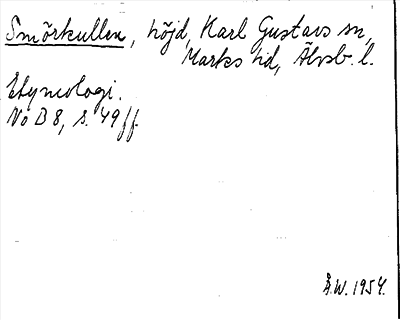 Smörkullen, höjd, Karl Gustavs sn,
Marks hd, Älvsb. l.
Etymologi.
NoB 8, s. 49 ff.
Å.W. 1954.